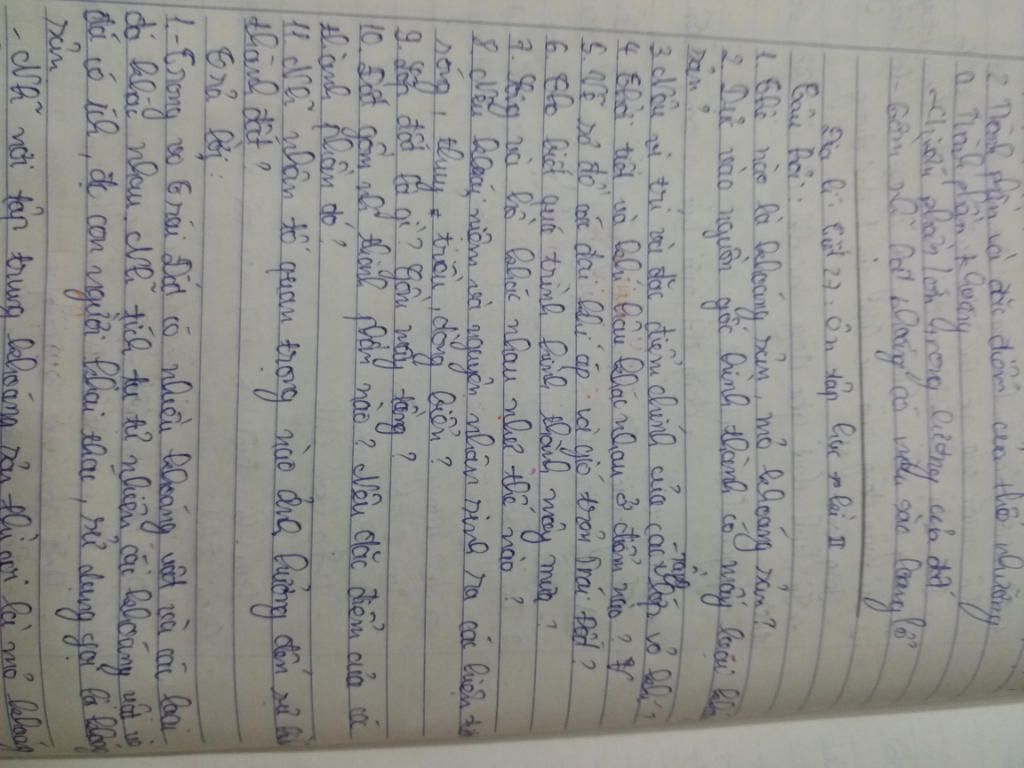 2. Thành phần và đặc điểm của thổ nhưỡng
a. Thành phần khoáng
- Chiếm phần lớn trọng lượng của đất
- Gồm những hạt khoáng có màu sắc loang lổ
Địa lí Tiết 27, ôn tập học kì II
Câu hỏi:
1. Thế nào là khoáng sản, mỏ khoáng sản?
2. Dựa vào nguồn gốc hình thành có mấy loại
sản?
3. Nêu vị trí và đặc điểm chính của các tầng lớp vỏ khí?
4. Thời tiết và khí hậu khác nhau ở điểm nào?
5. Vẽ sơ đồ các đai khí áp và gió trên Trái Đất?
6. Cho biết quá trình hình thành mây mưa?
7. Sông và hồ khác nhau như thế nào?
8. Nêu khái niệm và nguyên nhân sinh ra các hiện
sóng, thủy triều, dòng biển?
9. Lớp đất là gì? Gồm mấy tầng?
10. Đất gồm những thành phần nào? Nêu đặc điểm của các
thành phần đó?
11. Những nhân tố quan trọng nào ảnh hưởng đến sự hình
thành đất?
Trả lời:
1. - Trong vỏ Trái Đất có nhiều khoáng vật và các loại
đá khác nhau. Những tích tụ tự nhiên các khoáng vật và
đá có ích, đc con người khai thác, sử dụng gọi là khoáng
sản
- Những nơi tập trung khoáng sản thì gọi là mỏ khoáng